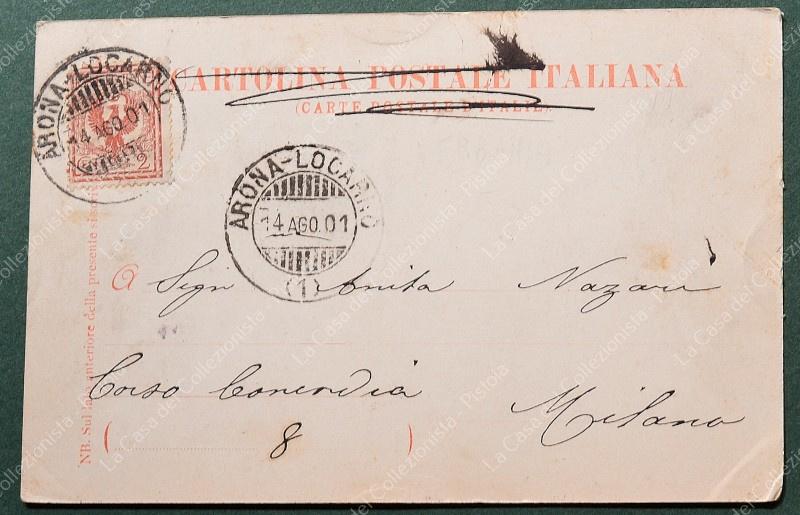 CARTOLINA POSTALE ITALIANA
(CARTE POSTALE D'ITALIE)
ARONA-LOCARNO
14 AGO.01
2
ARONA-LOCARNO
14 AGO.01
(1)
A Sign Anita Nazari
Corso Concordia
8
Milano
NB. Sul lato anteriore della presente si scrive
La Casa del Collezionista - Pistoia